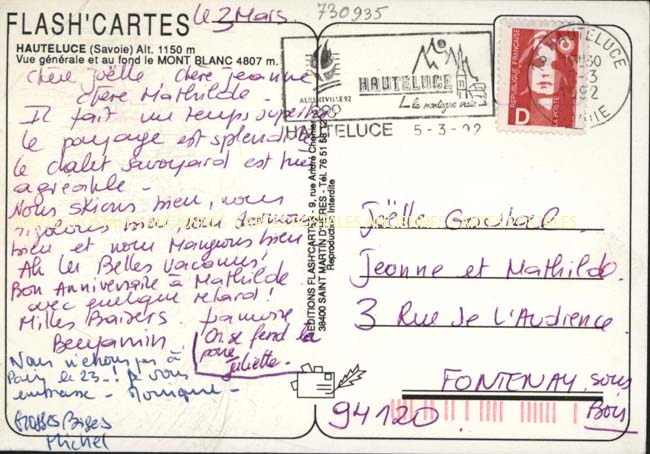 FLASH'CARTES
HAUTELUCE (Savoie) Alt. 1150 m
Vue générale et au fond le MONT BLANC 4807 m.
le 3 Mars
730935
Chère Joëlle chère Jeanne
chère Mathilde -
Il fait un temps superbe
le paysage est splendide
le chalet savoyard est très
agréable -
Nous skions bien, nous
rigolons bien, nous dormons
bien et nous mangeons bien
Ah les Belles vacances!
Bon Anniversaire à Mathilde
avec quelque retard!
Milles Baisers
Benjamin
On se fend la
poire
Juliette -
Nous à
Paris le 23 - ! Je vous
embrasse - Monique -
Grosses Bises
Michel
EDITIONS FLASH'CARTES - 9, rue André Chénier
38400 SAINT MARTIN D'HERES - Tél. 76 51 58 12
Reproduction interdite
ALBERTVILLE 92
HAUTELUCE
la montagne vraie
HAUTELUCE 5-3-92
REPUBLIQUE FRANÇAISE
D
LA POSTE
HAUTELUCE
1992
SAVOIE
Joëlle
Jeanne et Mathilde
3 Rue de l'Audience
FONTENAY sous
Bois
94120